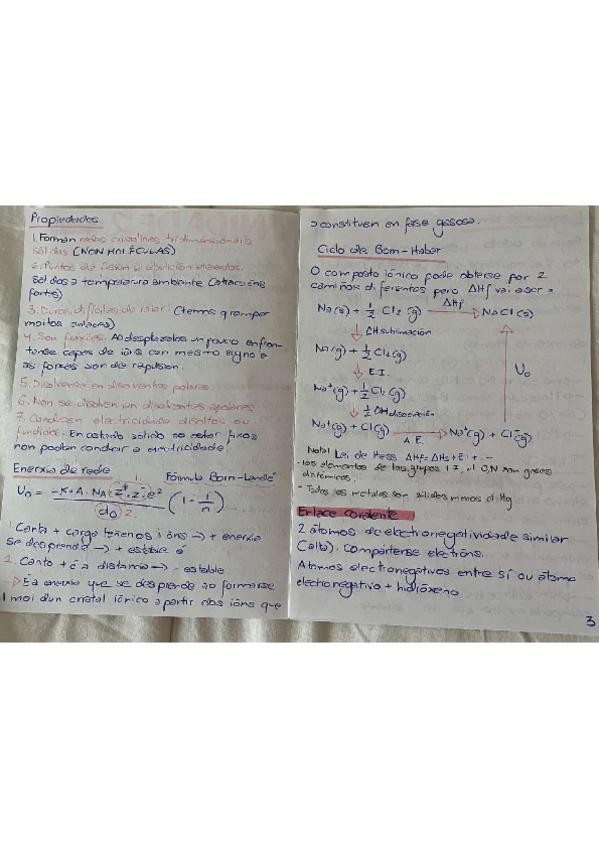 Propiedades
1. Forman redes cristalinas tridimensionais
sólidas (NON MOLÉCULAS)
2. Puntos de fusión e ebulición elevados.
Sólidos a temperatura ambiente (atraccións
fortes)
3. Duros, difíciles de raiar. (temos q romper
moitos enlaces)
4. Son fráxiles. Ao desprazalos un pouco enfron-
tanse capas de ións con mesmo signo e
as forzas son de repulsión.
5. Disólvense en disolventes polares.
6. Non se disolven en disolventes apolares
7. Conducen electricidade disoltos ou
fundidos. En estado sólido ao estar fixos
non poden conducir a electricidade!
Enerxía de rede
Fórmula Born-Landé
U₀ = -K·A·NA·Z⁺·Z⁻·e² / d₀ (1 - 1/n)
1.
2.
1. Canta + carga teñen os ións → + enerxía
se desprende → + estable é
2. Canto + é a distancia → - estable
É a enerxía que se desprende ao formarse
1 mol dun cristal iónico a partir dos ións que
o constituen en fase gasosa.
Ciclo de Born-Haber
O composto iónico pode obterse por 2
camiños diferentes pero ΔHf vai a ser =
Na(s) + 1/2 Cl₂(g) → ΔHf → NaCl(s)
↓ ΔH sublimación
Na(g) + 1/2 Cl₂(g)
↓ E.I.
Na⁺(g) + 1/2 Cl₂(g)
U₀
↓ 1/2 ΔH disociación
Na⁺(g) + Cl(g) → A.E. → Na⁺(g) + Cl⁻(g)
Nota! Lei de Hess ΔHf = ΔHs + E.I + ...
- los elementos de los grupos 17, H, O, N son gases
diatómicos.
- Todos los metales son sólidos menos el Hg
Enlace covalente
2 átomos de electronegatividade similar
(alta). Compártense electróns.
Átomos electronegativos entre sí ou átomo
electronegativo + hidróxeno
3